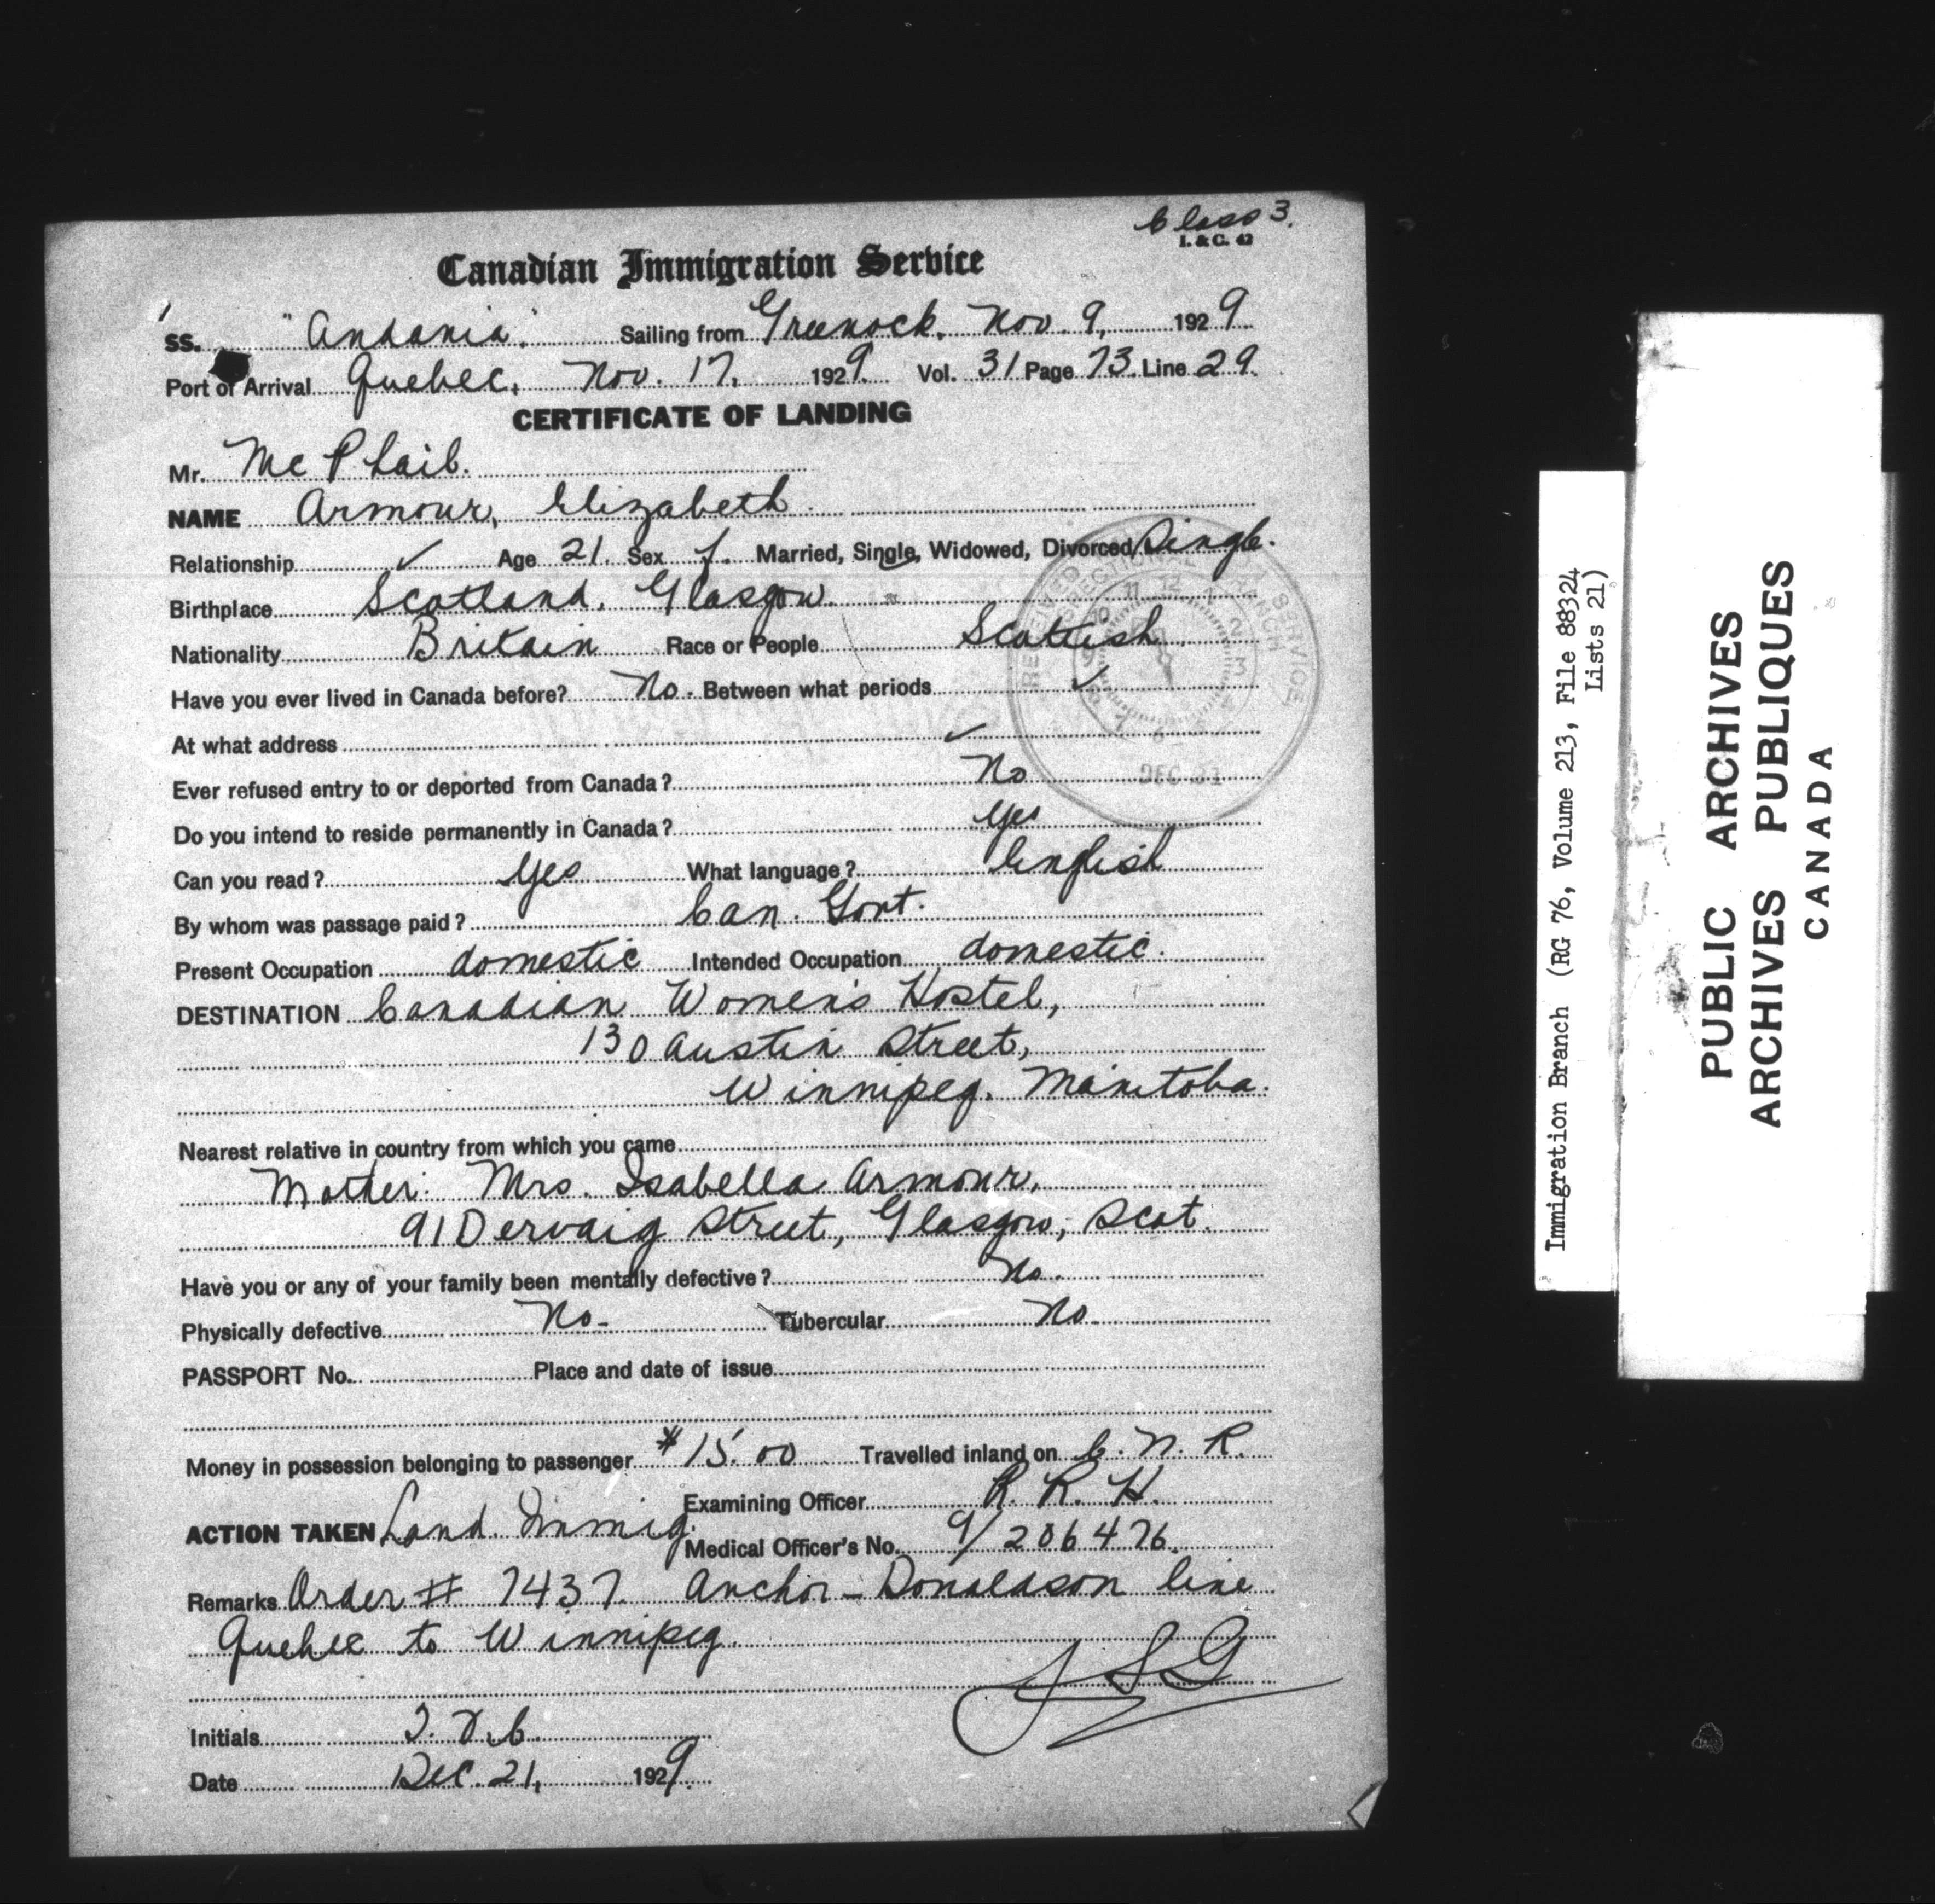 Class 3.
I. & C. 42
Canadian Immigration Service
SS. "Andania." Sailing from Greenock. Nov. 9, 1929
Port of Arrival Quebec, Nov. 17, 1929. Vol. 31 Page 73. Line 29.
CERTIFICATE OF LANDING
Mr. McPhail.
NAME Armour, Elizabeth.
Relationship ✓ Age 21. Sex f. Married, Single, Widowed, Divorced Single.
Birthplace Scotland, Glasgow.
Nationality Britain Race or People Scottish
Have you ever lived in Canada before? No. Between what periods ✓
At what address ✓
Ever refused entry to or deported from Canada? No
Do you intend to reside permanently in Canada? Yes
Can you read? Yes What language? English
By whom was passage paid? Can. Govt.
Present Occupation domestic Intended Occupation domestic.
DESTINATION Canadian Women's Hostel,
130 Austin Street,
Winnipeg. Manitoba.
Nearest relative in country from which you came
Mother: Mrs. Isabella Armour,
91 Dervaig Street, Glasgow, Scot.
Have you or any of your family been mentally defective? No.
Physically defective No- Tubercular No.
PASSPORT No. Place and date of issue
Money in possession belonging to passenger $15.00 Travelled inland on C. N. R.
Examining Officer R. R. H.
ACTION TAKEN Land. Immig.
Medical Officer's No. 9/206476.
Remarks Order # 7437. Anchor-Donaldson line
Quebec to Winnipeg.
JSG
Initials
Date Dec. 21, 1929.
RECEIVED
SERVICE
BRANCH
11 12
10
2
9 3
7 6
DEC 21
Immigration Branch (RG 76, Volume 213, File 88324
Lists 21)
PUBLIC ARCHIVES
ARCHIVES PUBLIQUES
CANADA